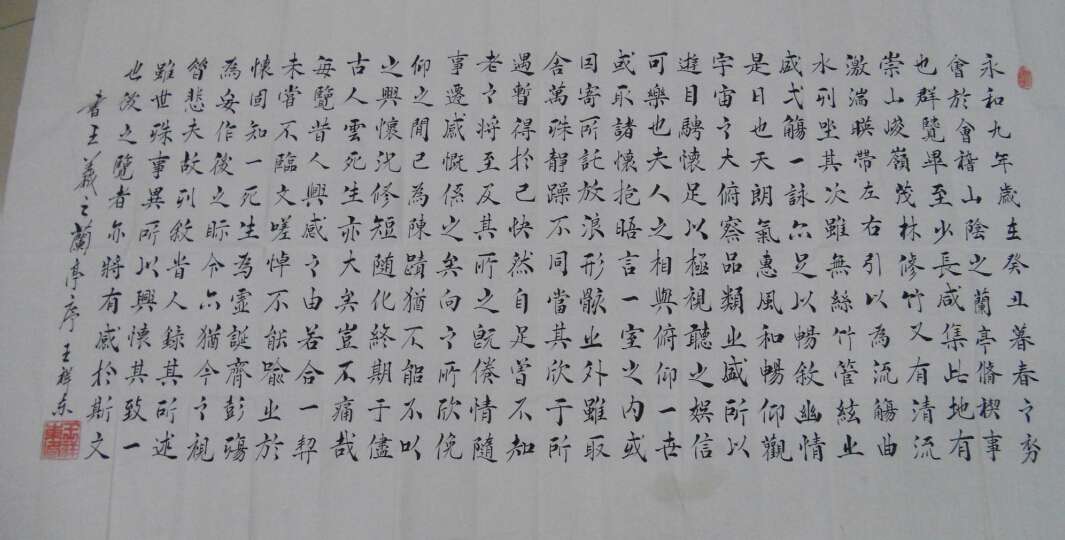 永和九年歲在癸丑暮春之初
會於會稽山陰之蘭亭脩禊事
也群賢畢至少長咸集此地有
崇山峻嶺茂林修竹又有清流
激湍暎帶左右引以為流觴曲
水列坐其次雖無絲竹管絃之
盛弌觴一詠亦足以暢敘幽情
是日也天朗氣惠風和暢仰觀
宇宙之大俯察品類之盛所以
遊目騁懷足以極視聽之娛信
可樂也夫人之相與俯仰一世
或取諸懷抱晤言一室之內或
因寄所託放浪形骸之外雖取
舍萬殊靜躁不同當其欣于所
遇暫得於己快然自足曾不知
老之將至及其所之既倦情隨
事遷感慨係之矣向之所欣俛
仰之間已為陳蹟猶不能不以
之興懷況修短隨化終期于儘
古人雲死生亦大矣豈不痛哉
每覽昔人興感之由若合一契
未嘗不臨文嗟悼不能喻之於
懷固知一死生為虛誕齊彭殤
為妄作後之眎今亦猶今之視
昔悲夫故列敘昔人錄其所述
雖世殊事異所以興懷其致一
也後之覽者亦將有感於斯文
書王羲之蘭亭序 王祥东